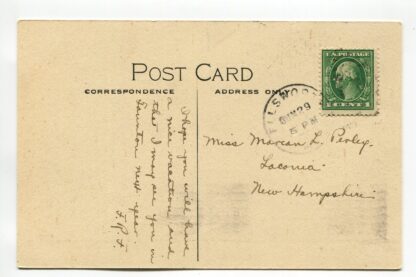 POST CARD
CORRESPONDENCE
ADDRESS ONLY
I hope you will have
a nice vacation and
that I may see you in
Taunton next year.
F. P. F.
U.S. POSTAGE
1 CENT 1
29
5 PM
Miss Marian L. Perley.
Laconia
New Hampshire.